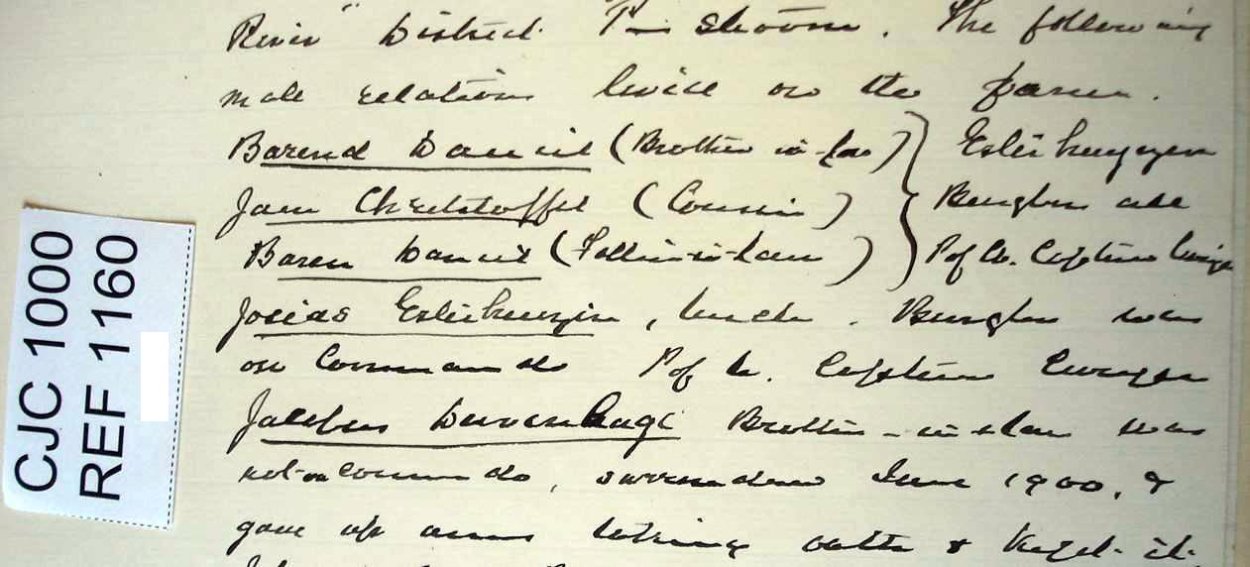 River" District. The following
male relations lived on the farm.
Barend Daniel (Brother in-law)
Jan Christoffel (Cousin)
Baren Daniel (Father-in-Law)
Esterhuyzen
Burghers all
P of W. Capture
Josias Esterhuyzen, Uncle. Burgher was
on Commando P of W. Capture
Jacobus Davenhage Brother-in-law was
not on Commando, surrendered June 1900, &
gave up arms taking oath & kept it.
CJC 1000
REF 1160